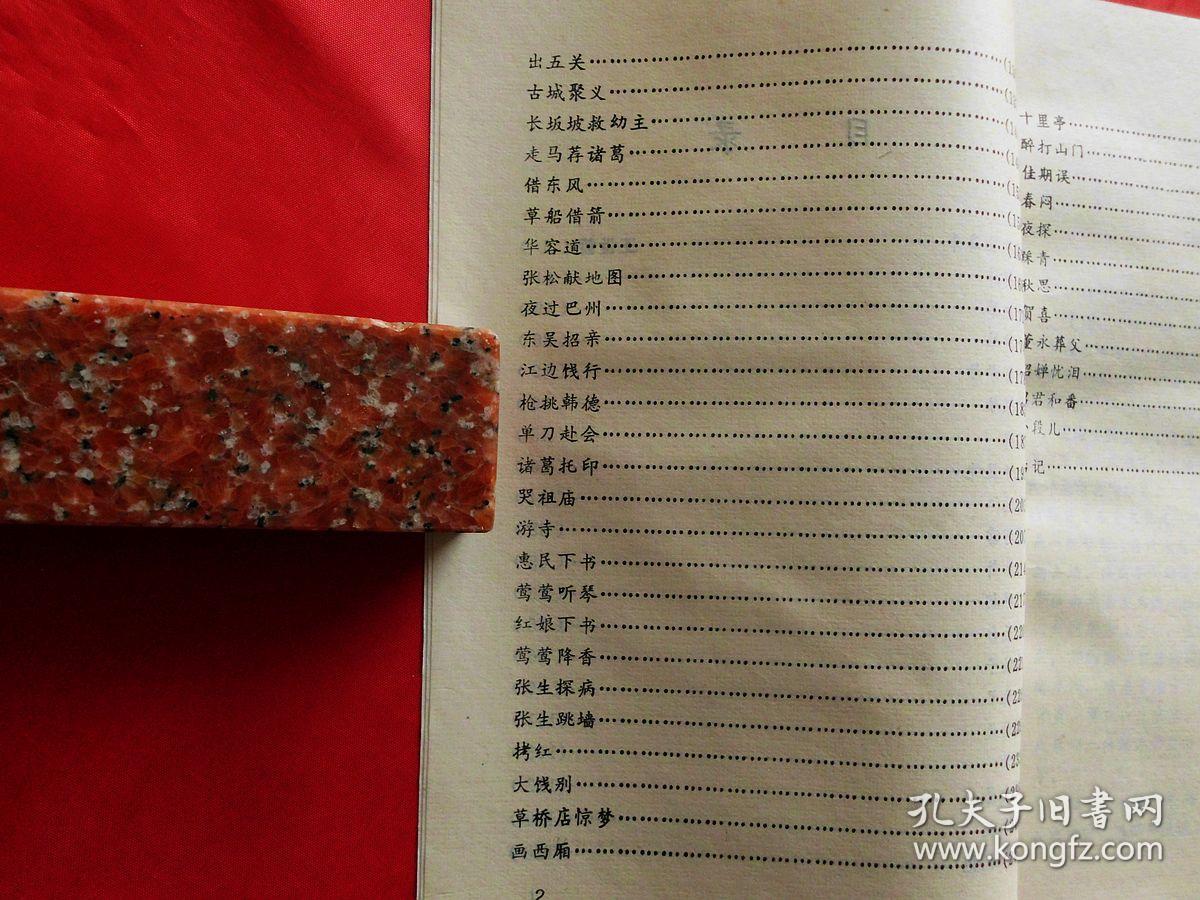 出五关
古城聚义
长坂坡救幼主
走马荐诸葛
借东风
草船借箭
华容道
张松献地图
夜过巴州
东吴招亲
江边饯行
枪挑韩德
单刀赴会
诸葛托印
哭祖庙
游寺
惠民下书
莺莺听琴
红娘下书
莺莺降香
张生探病
张生跳墙
拷红
大饯别
草桥店惊梦
画西厢
2
十里亭
醉打山门
佳期误
春闷
夜探
踩青
秋思
贺喜
董永葬父
婵忧泪
君和番
段儿
记
目录
孔夫子旧書网
www.kongfz.com